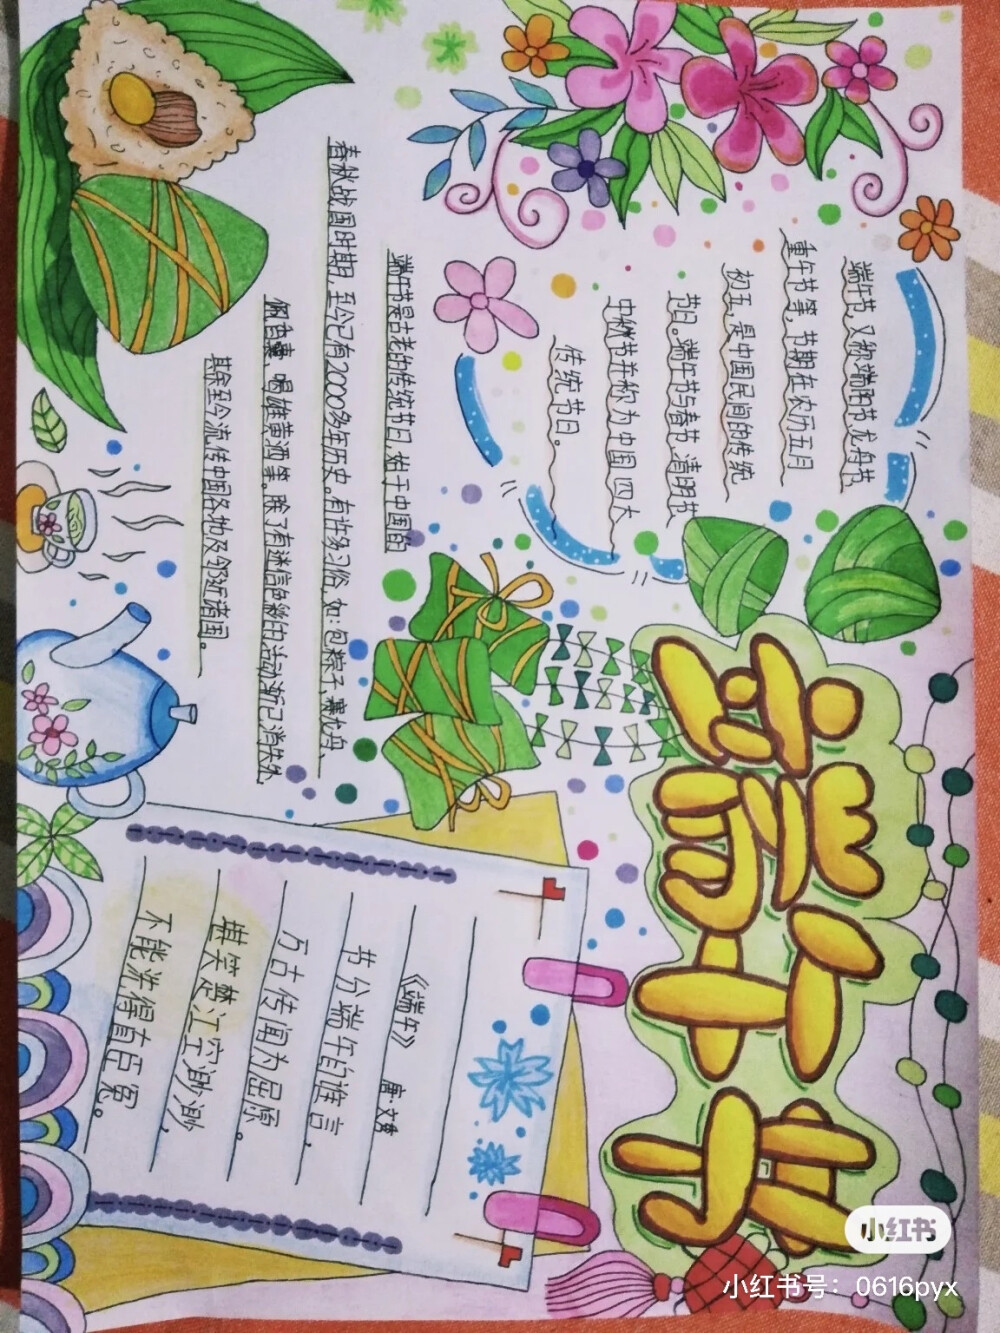 端午节
端午节,又称端阳节,龙舟节
重午节等,节期在农历五月
初五,是中国民间的传统
节日。端午节与春节、清明节
中秋节并称为中国四大
传统节日。
端午节是古老的传统节日,始于中国的
春秋战国时期,至今已有2000多年历史。有许多习俗,如:包粽子,赛龙舟、
佩香囊、喝雄黄酒等。除了有迷信色彩的活动渐已消失外,
其余至今流传中国各地及邻近诸国。
《端午》 唐·文秀
节分端午自谁言,
万古传闻为屈原。
堪笑楚江空渺渺,
不能洗得直臣冤。
小红书
小红书号:0616pyx